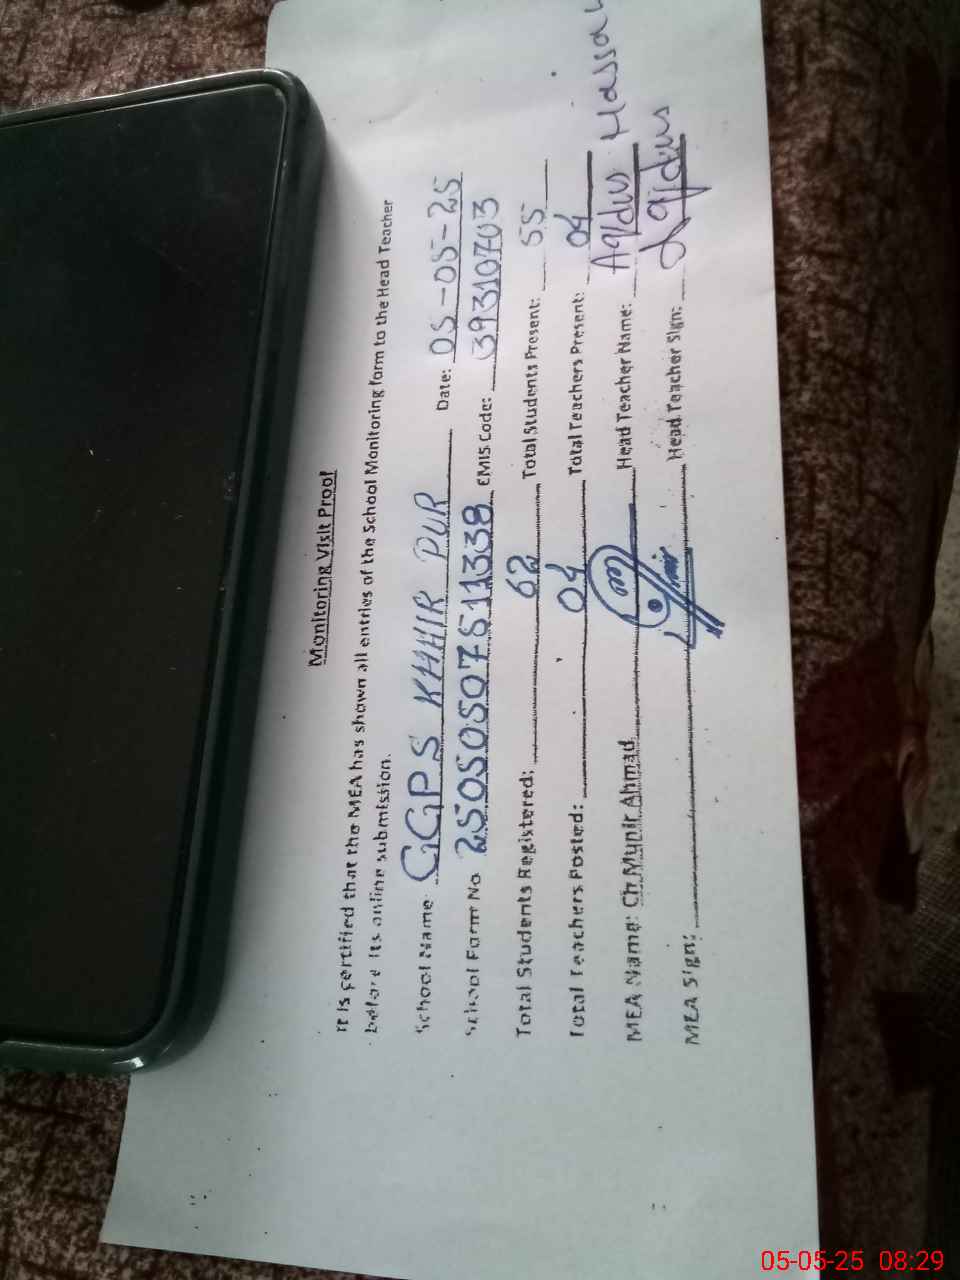 Monitoring Visit Proof
It is certified that the MEA has shown all entries of the School Monitoring form to the Head Teacher
before its online submission.
School Name GGPS KHHIR PUR Date: 05-05-25
School Form No 25050507511338 EMIS Code: 39310703
Total Students Registered: 62 Total Students Present: 55
Total Teachers Posted: 04 Total Teachers Present: 04
MEA Name: Ch.Munir Ahmad Head Teacher Name: Aqdus Hassan
MEA Sign: Head Teacher Sign: Aqdus
05-05-25 08:29